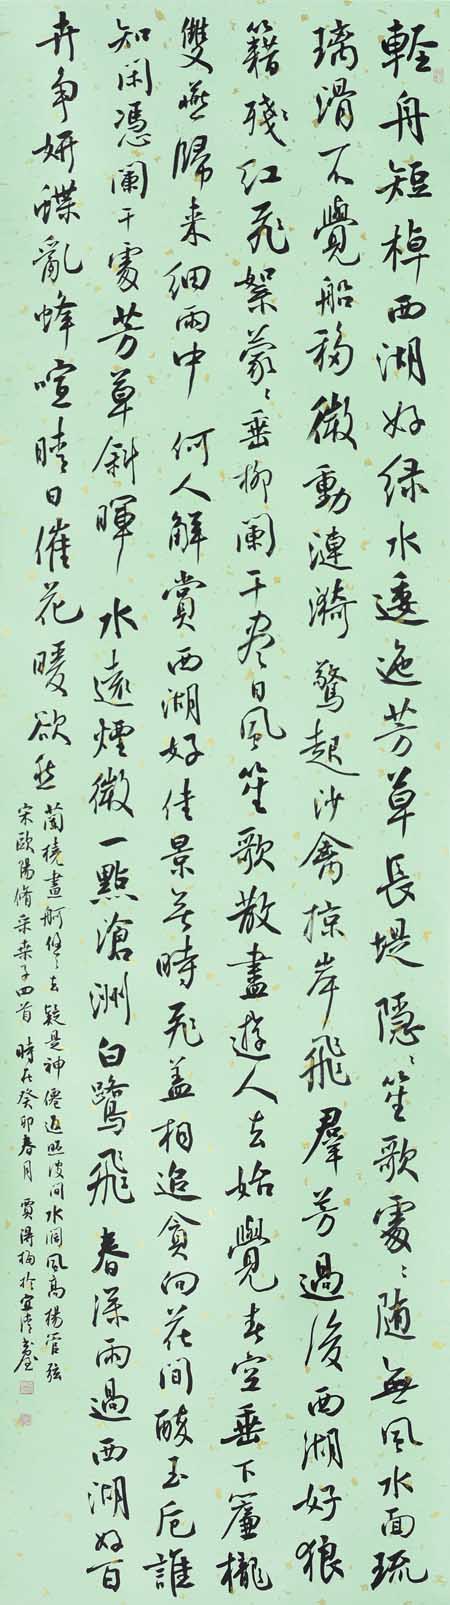 輕舟短棹西湖好绿水逶迤芳草長堤隱〻笙歌處〻随無風水面琉
璃滑不覺船移微動漣漪驚起沙禽掠岸飛羣芳過後西湖好狼
籍殘红飛絮蒙〻垂柳闌干盡日風笙歌散盡遊人去始覺春空垂下簾櫳
雙燕歸来细雨中何人解賞西湖好佳景無時飛盖相追貪向花間醉玉卮誰
知闲憑闌干處芳草斜暉水遠煙微一點滄洲白鷺飛春深雨過西湖好百
卉争妍蝶亂蜂喧晴日催花暖欲然
蘭橈畫舸悠〻去疑是神僊返照波间水闊風高楊管弦
宋歐陽脩采桑子四首時在癸卯春月賈得梅於